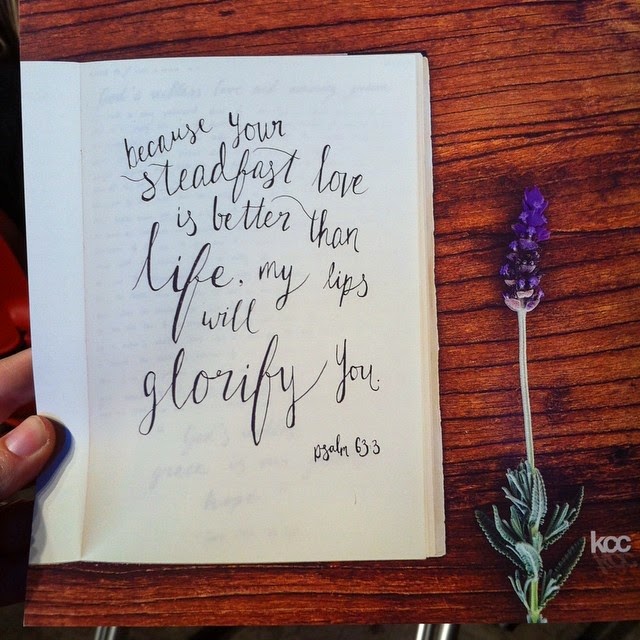 because your
steadfast love
is better than
life, my lips
will
glorify you.
psalm 63:3
kcc